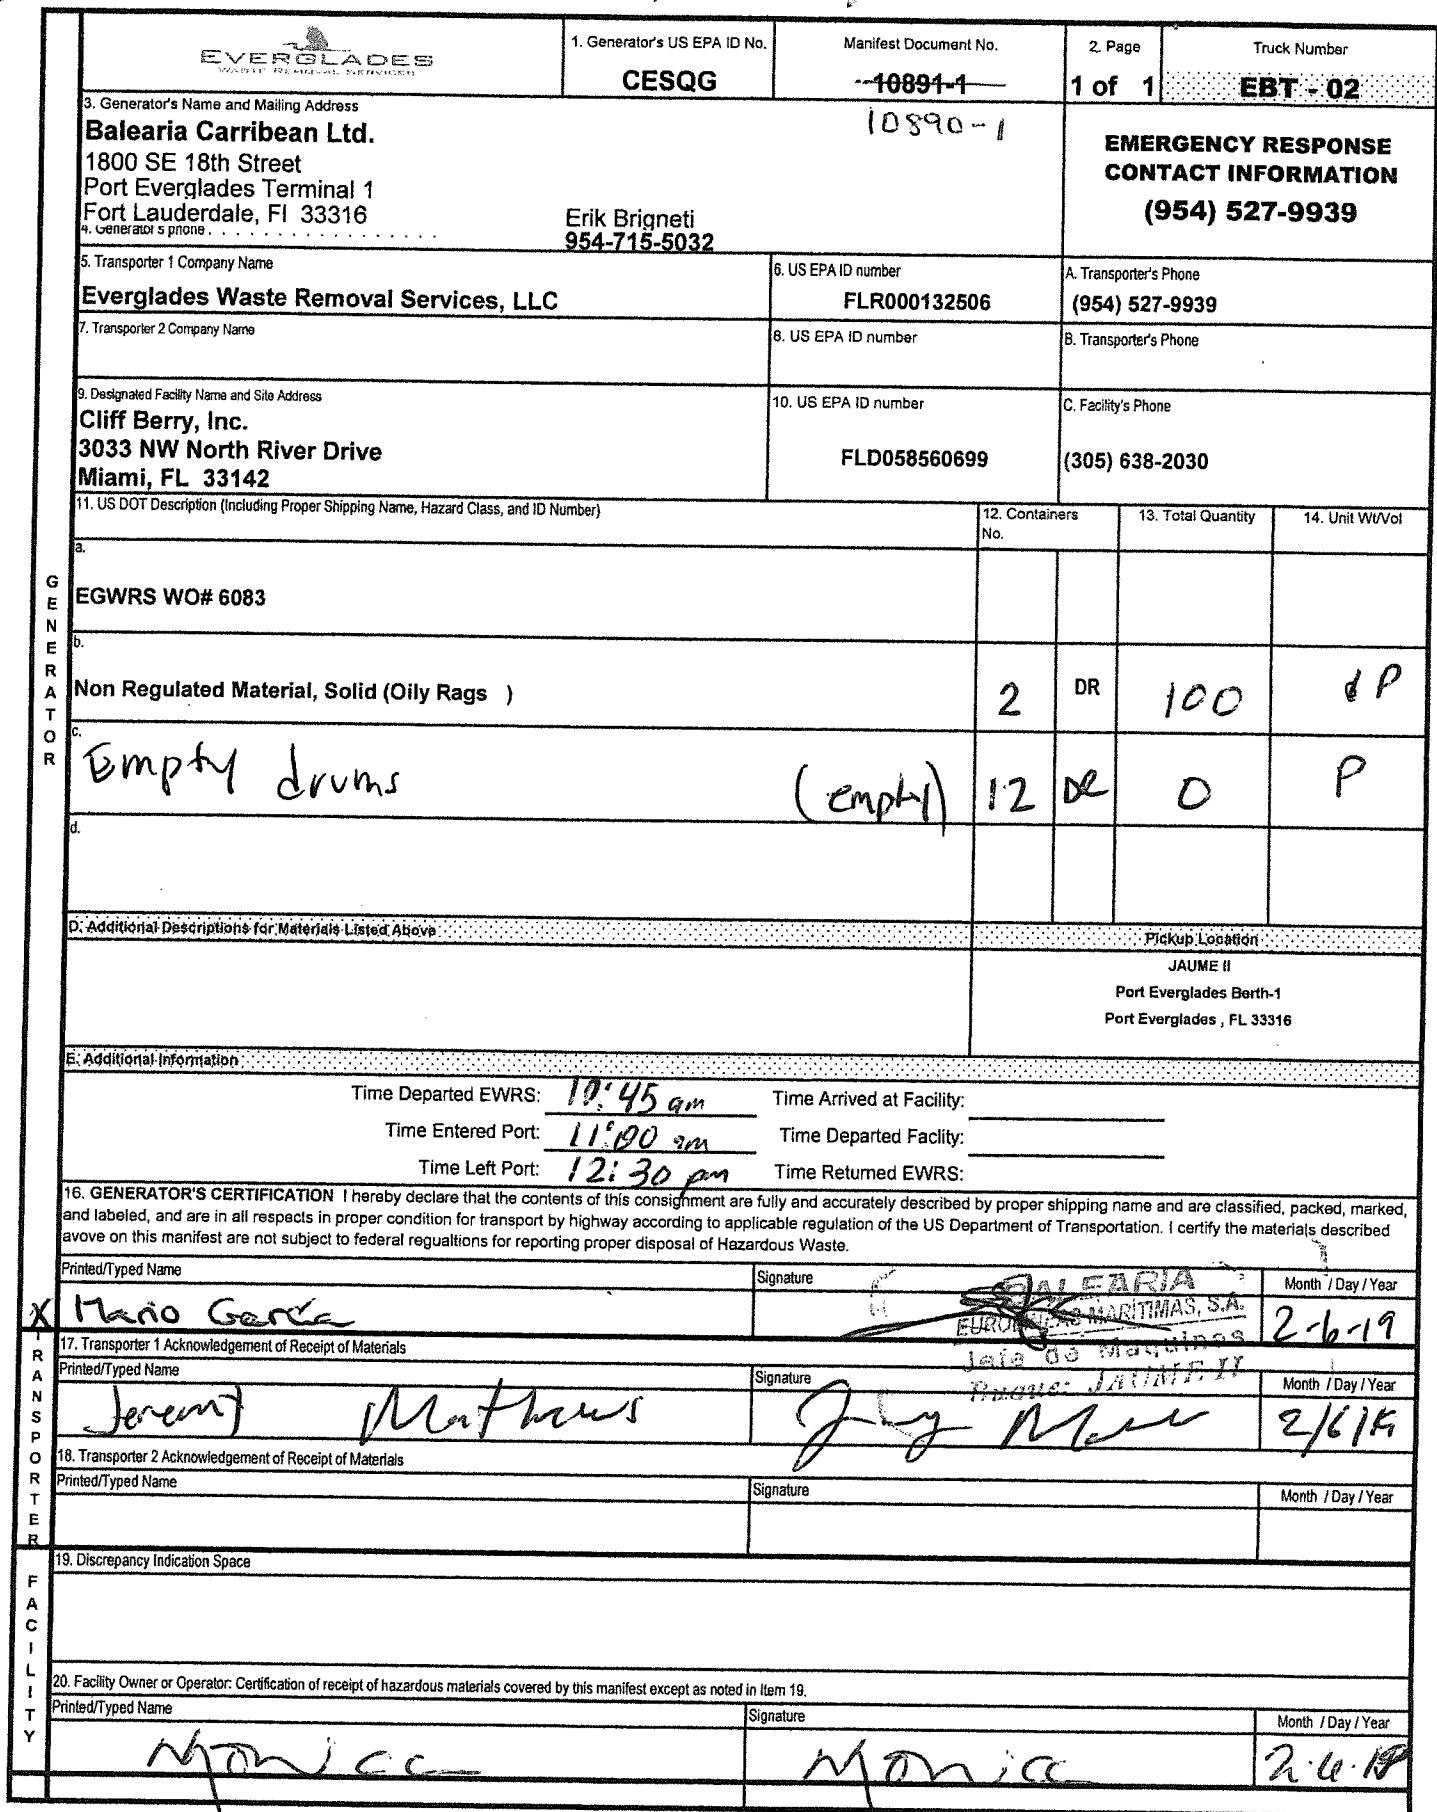 EVERGLADES
WASTE REMOVAL SERVICES
1. Generator's US EPA ID No.
CESQG
Manifest Document No.
10891-1
10890-1
2. Page
1 of 1
Truck Number
EBT - 02
3. Generator's Name and Mailing Address
Balearia Carribean Ltd.
1800 SE 18th Street
Port Everglades Terminal 1
Fort Lauderdale, Fl 33316
4. Generator's phone . . . . . . . . . . . . . . . . .
Erik Brigneti
954-715-5032
EMERGENCY RESPONSE
CONTACT INFORMATION
(954) 527-9939
5. Transporter 1 Company Name
Everglades Waste Removal Services, LLC
6. US EPA ID number
FLR000132506
A. Transporter's Phone
(954) 527-9939
7. Transporter 2 Company Name
8. US EPA ID number
B. Transporter's Phone
9. Designated Facility Name and Site Address
Cliff Berry, Inc.
3033 NW North River Drive
Miami, FL 33142
10. US EPA ID number
FLD058560699
C. Facility's Phone
(305) 638-2030
11. US DOT Description (Including Proper Shipping Name, Hazard Class, and ID Number)
12. Containers
No.
13. Total Quantity
14. Unit Wt/Vol
GENERATOR
a.
EGWRS WO# 6083
b.
Non Regulated Material, Solid (Oily Rags )
2 DR 100 P
c.
Empty drums (empty) 12 DR 0 P
d.
D. Additional Descriptions for Materials Listed Above
Pickup Location
JAUME II
Port Everglades Berth-1
Port Everglades , FL 33316
E. Additional Information
Time Departed EWRS: 10:45 am
Time Arrived at Facility:
Time Entered Port: 11:00 am
Time Departed Faclity:
Time Left Port: 12:30 pm
Time Returned EWRS:
16. GENERATOR'S CERTIFICATION I hereby declare that the contents of this consignment are fully and accurately described by proper shipping name and are classified, packed, marked,
and labeled, and are in all respects in proper condition for transport by highway according to applicable regulation of the US Department of Transportation. I certify the materials described
avove on this manifest are not subject to federal regualtions for reporting proper disposal of Hazardous Waste.
Printed/Typed Name
Signature
Month / Day / Year
X Mario García
BALEARIA
MARÍTIMAS, S.A.
Jefe de Maquinas
Buque: JAUME II
2-6-19
TRANSPORTER
17. Transporter 1 Acknowledgement of Receipt of Materials
Printed/Typed Name
Signature
Month / Day / Year
Jeremy Mathews
2/6/19
18. Transporter 2 Acknowledgement of Receipt of Materials
Printed/Typed Name
Signature
Month / Day / Year
FACILITY
19. Discrepancy Indication Space
20. Facility Owner or Operator: Certification of receipt of hazardous materials covered by this manifest except as noted in Item 19.
Printed/Typed Name
Signature
Month / Day / Year
Monica
Monica